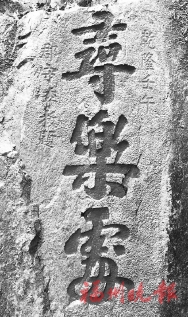 乾隆壬午
尋樂處
郡守李拔題
福州晚報